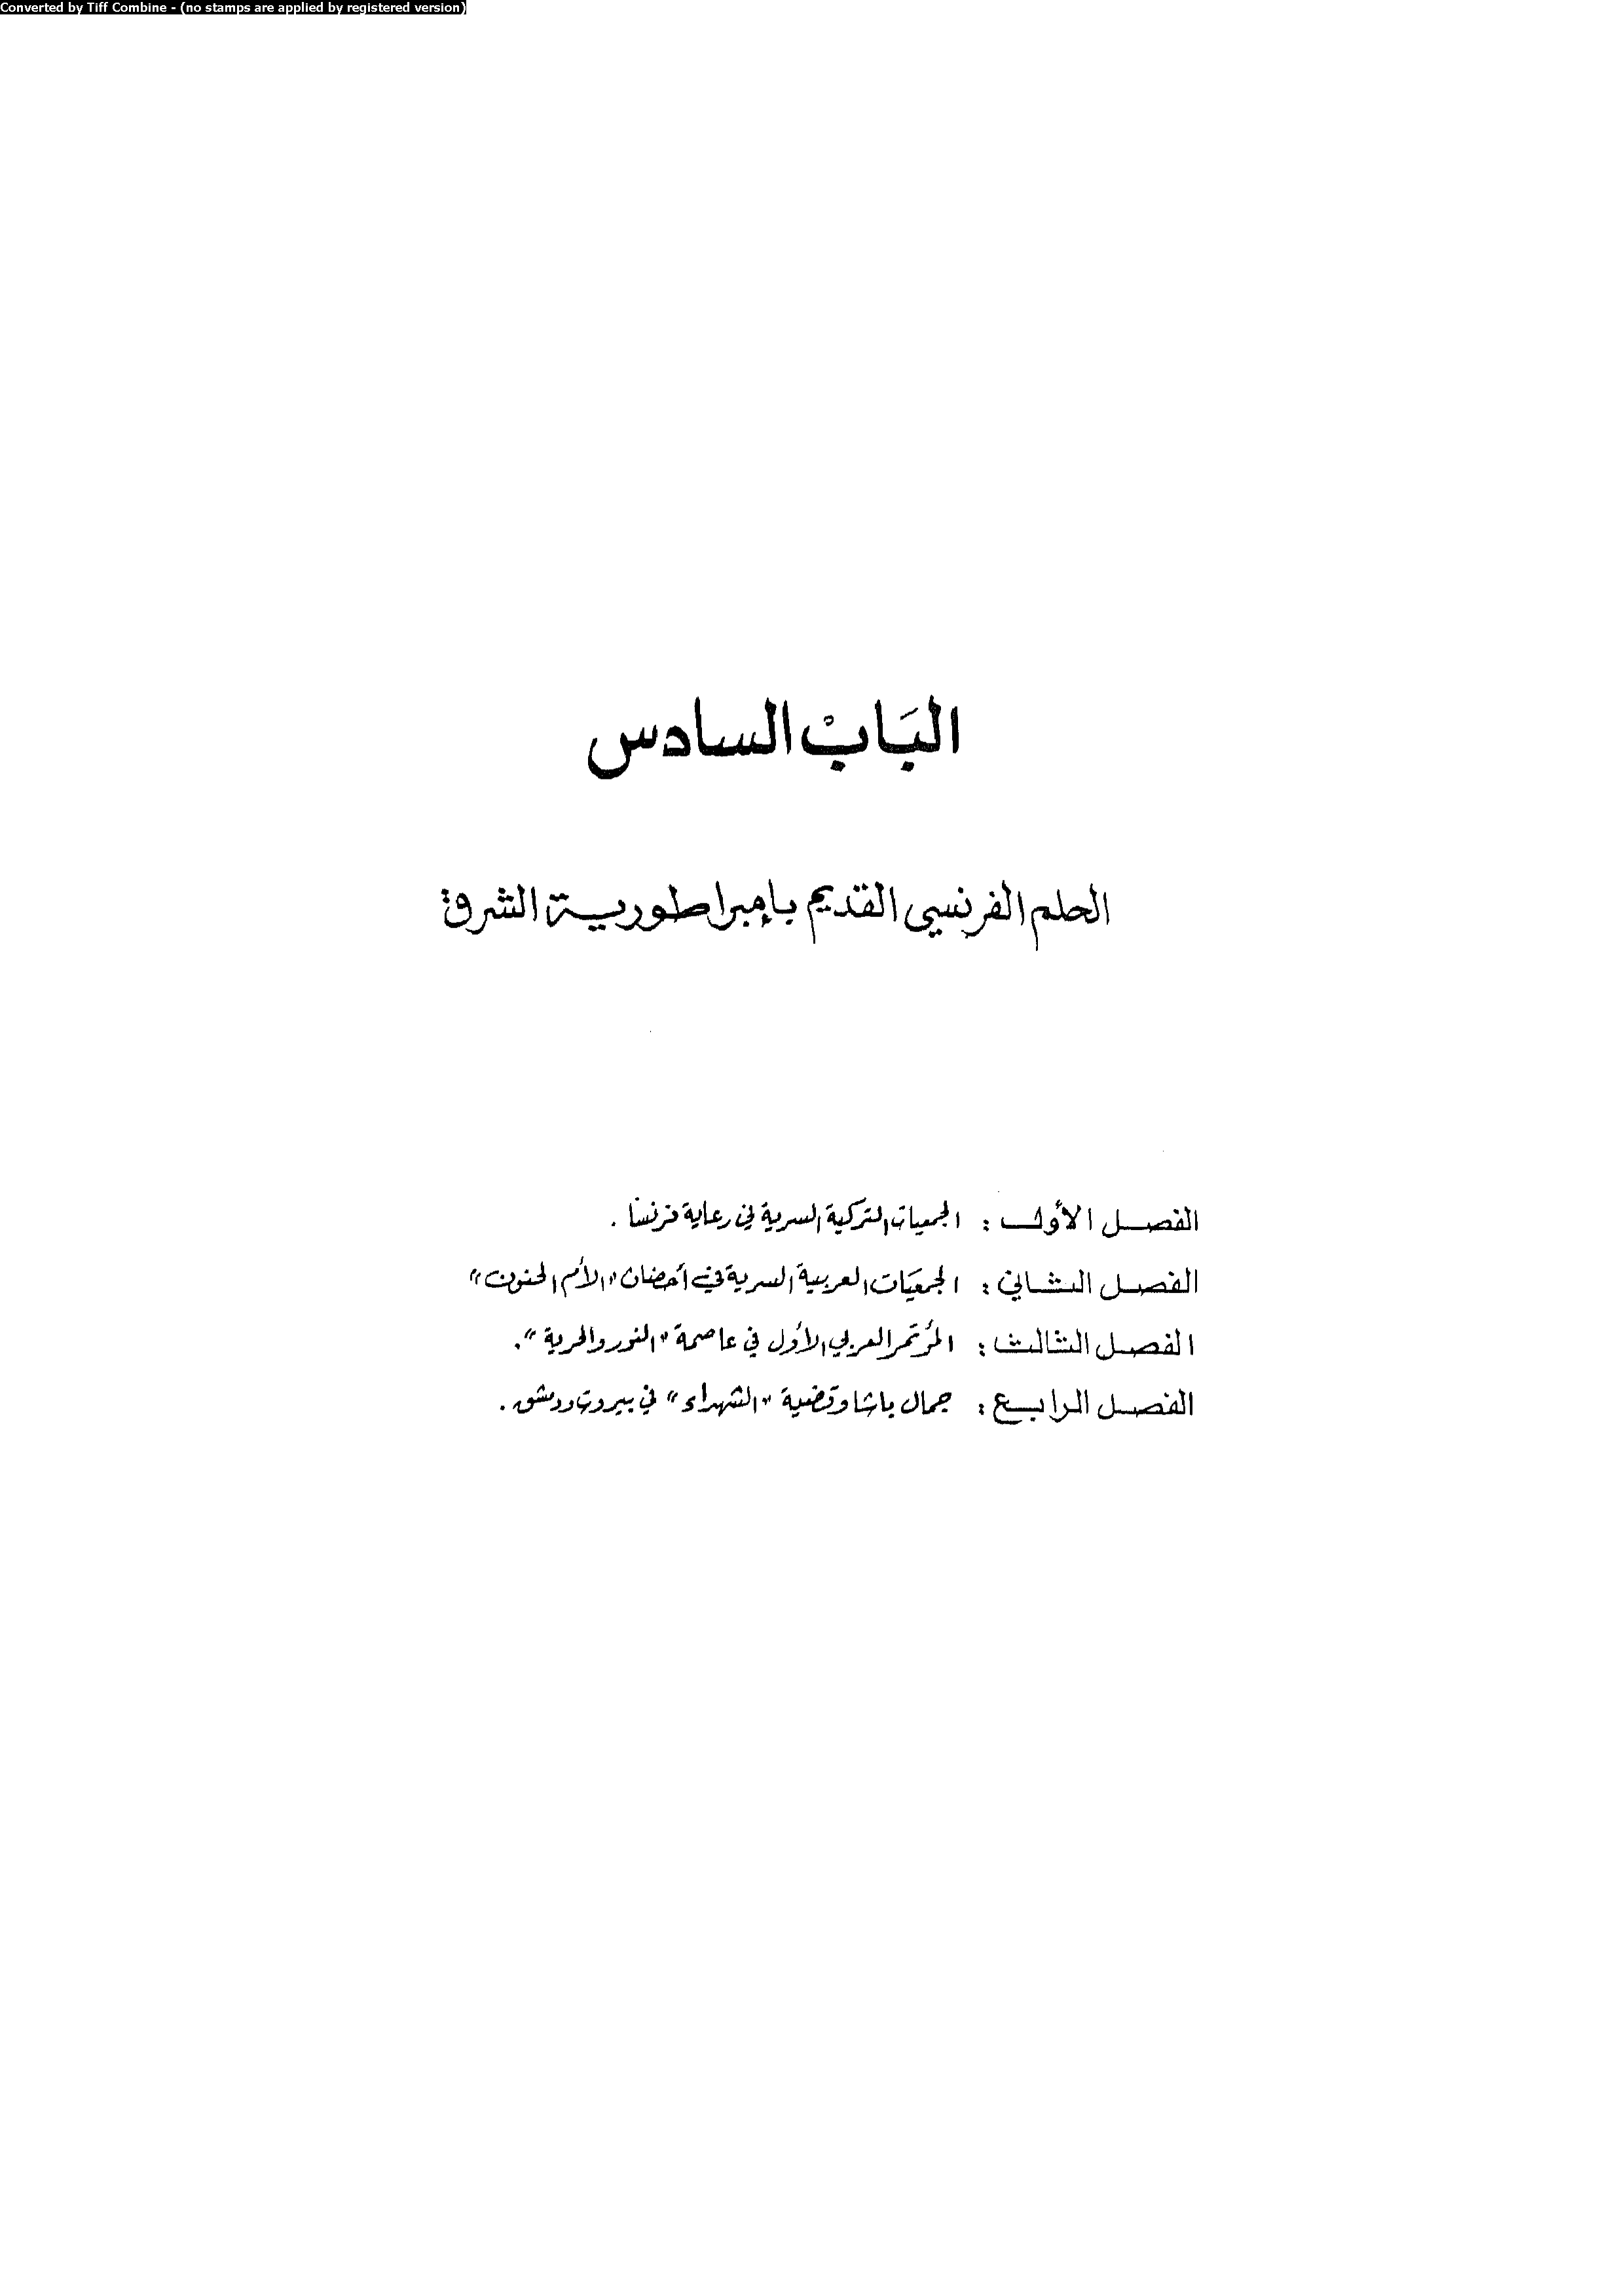 Converted by Tiff Combine - (no stamps are applied by registered version)
البَابْ السادس
الحلم الفرنسي القديم بإمبراطورية الشرق
الفصل الأول : الجمعيات التركية السرية في رعاية فرنسا .
الفصل الثاني : الجمعيَات العربية السرية في أحضان "الأم الحنون"
الفصل الثالث : المؤتمر العربي الأول في عاصمة "النور والحرية".
الفصل الرابع : جمال باشا وقضية "الشهداء" في بيروت ودمشق .